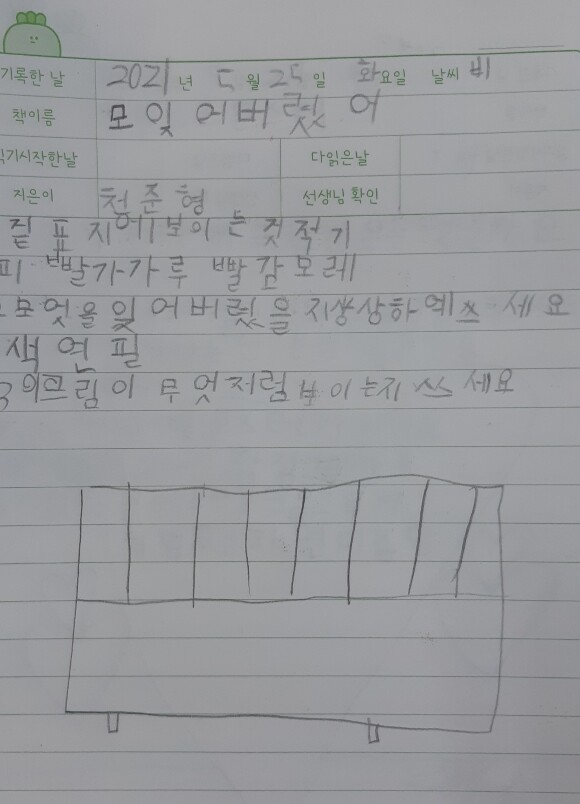 기록한 날 2021 년 5 월 25 일 화요일 날씨 비
책이름 모 잊 어버렸 어
읽기시작한날 다읽은날
지은이 천준형 선생님 확인
표지에 보이는 것 적기
피 빨가가루 빨감 모레
모엇을 잊어버렸을지상상하예쓰세요
색연필
3의그림이 무엇저럼 보이는지 쓰세요